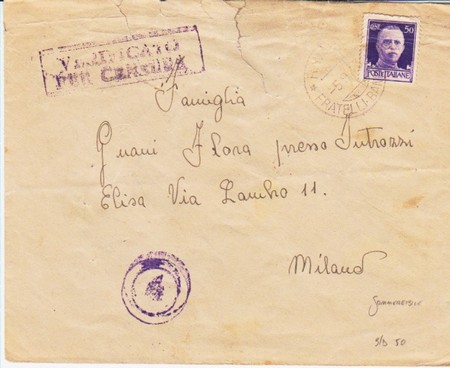 VERIFICATO
PER CENSURA
50
POSTE ITALIANE
FRATELLI
Famiglia
Guani Flora presso Introzzi
Elisa Via Lambro 11.
Milano
4
S/B 50